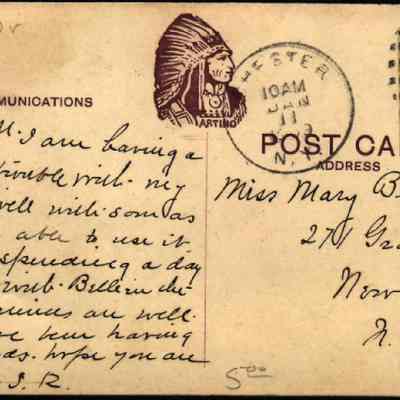 MUNICATIONS
ARTINO
HESTER
10AM
JAN
11
N.Y.
POST CA
ADDRESS
M. I am having a
trouble with my
well will soon as
able to use it
spending a day
with Belle in the
are well.
having
hope you are
S. R.
Miss Mary B
271 Gra
N.
5.00